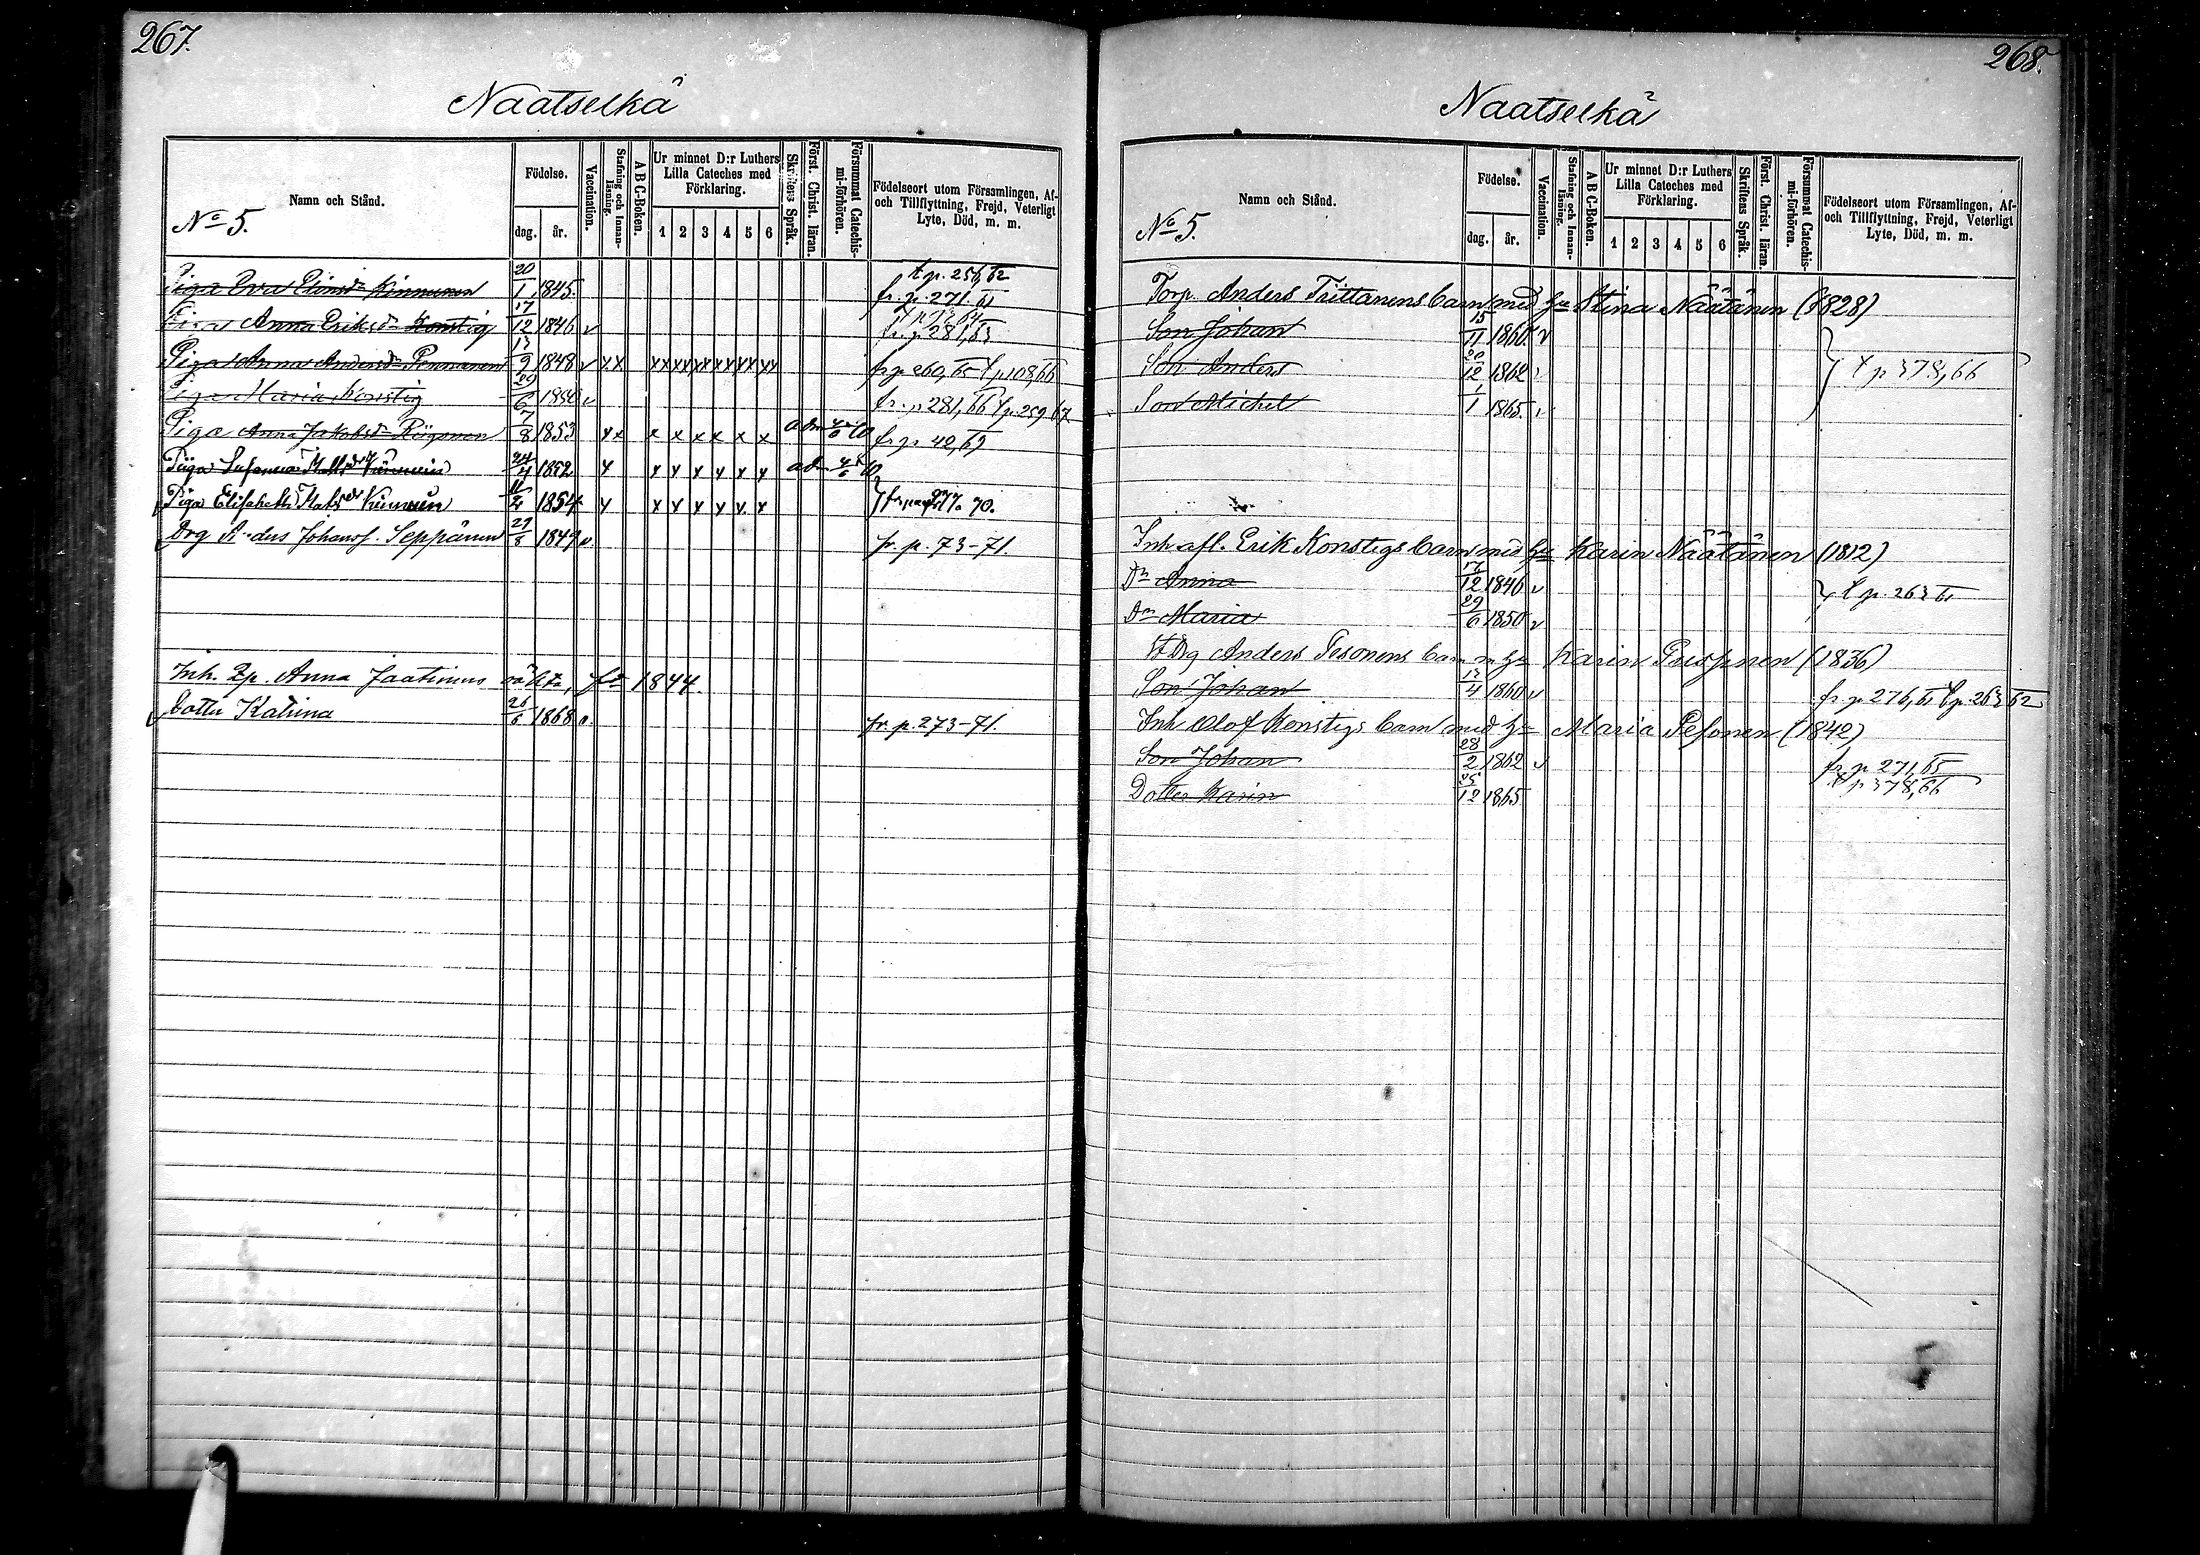 267.
Naatselkä
Namn och Stånd.
No 5.
Födelse.
dag.
år.
Vaccination.
Stafning och Innan-läsning.
A B C-Boken.
Ur minnet D:r Luthers
Lilla Cateches med
Förklaring.
1 2 3 4 5 6
Skriftens Språk.
Först. Christ. läran.
Försummat Catechis-mi-förhören.
Födelseort utom Församlingen, Af-
och Tillflyttning, Frejd, Veterligt
Lyte, Död, m. m.
Piga Eva Kinnunen 20/1 1845. fr. p. 271. 61 t p. 256, 62
Anna Eriksdr Konstig 17/12 1846 v fr. p. 281, 63
Piga Anna Andersdr Pennanen 13/9 1848 v x x xx xx xx xx xx xx fr p 260, 65 t p 108, 66
Piga Maria Konstig 29/6 1850 v fr. p 281, 66 t p. 259 67
Piga Anna Jakobsdr 7/8 1853 x x x x x x x x adm fr p 42, 69
Piga Susanna Mattsdr 24/4 1852 x x x x x x x adm
Piga Elisabeth Matsdr Kinnunen 11/2 1854 x x x x x x x fr pag 277. 70.
Drg Johans. Seppänen 29/8 1849 v. fr. p. 73-71.
Inh. Anna Jaatinens oäkta, fd 1844.
Dotter Katrina 26/6 1868 v. fr. p. 273-71.
268.
Naatselkä
Namn och Stånd.
No 5.
Födelse.
dag.
år.
Vaccination.
Stafning och Innan-läsning.
A B C-Boken.
Ur minnet D:r Luthers
Lilla Cateches med
Förklaring.
1 2 3 4 5 6
Skriftens Språk.
Först. Christ. läran.
Försummat Catechis-mi-förhören.
Födelseort utom Församlingen, Af-
och Tillflyttning, Frejd, Veterligt
Lyte, Död, m. m.
Torp. Anders Tiittanens barn med hu Stina Näätänen (1828)
Son Johan 15/11 1860 v
Son Anders 20/12 1862 v t p 378, 66
Son Michel 1/1 1865 v
Inh. afl. Erik Konstigs barn med hu Karin Näätänen (1812)
Dr Anna 17/12 1846 v t p. 263 61
Dr Maria 29/6 1850 v
Drg Anders Pesonens barn m hu Karin (1836)
Son Johan 13/4 1860 v fr. p 276, 61 t p. 263 62
Inh Olof Konstigs barn med hu Maria Pesonen (1842)
Son Johan 28/2 1862 v fr p 271, 65
Dotter Karin 25/12 1865 t p 378, 66